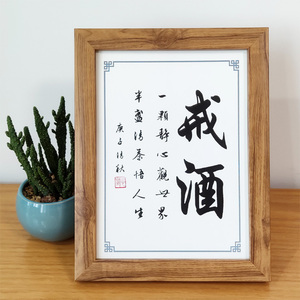 戒酒
一顆静心觀世界
半盞清茶悟人生
庚子清秋